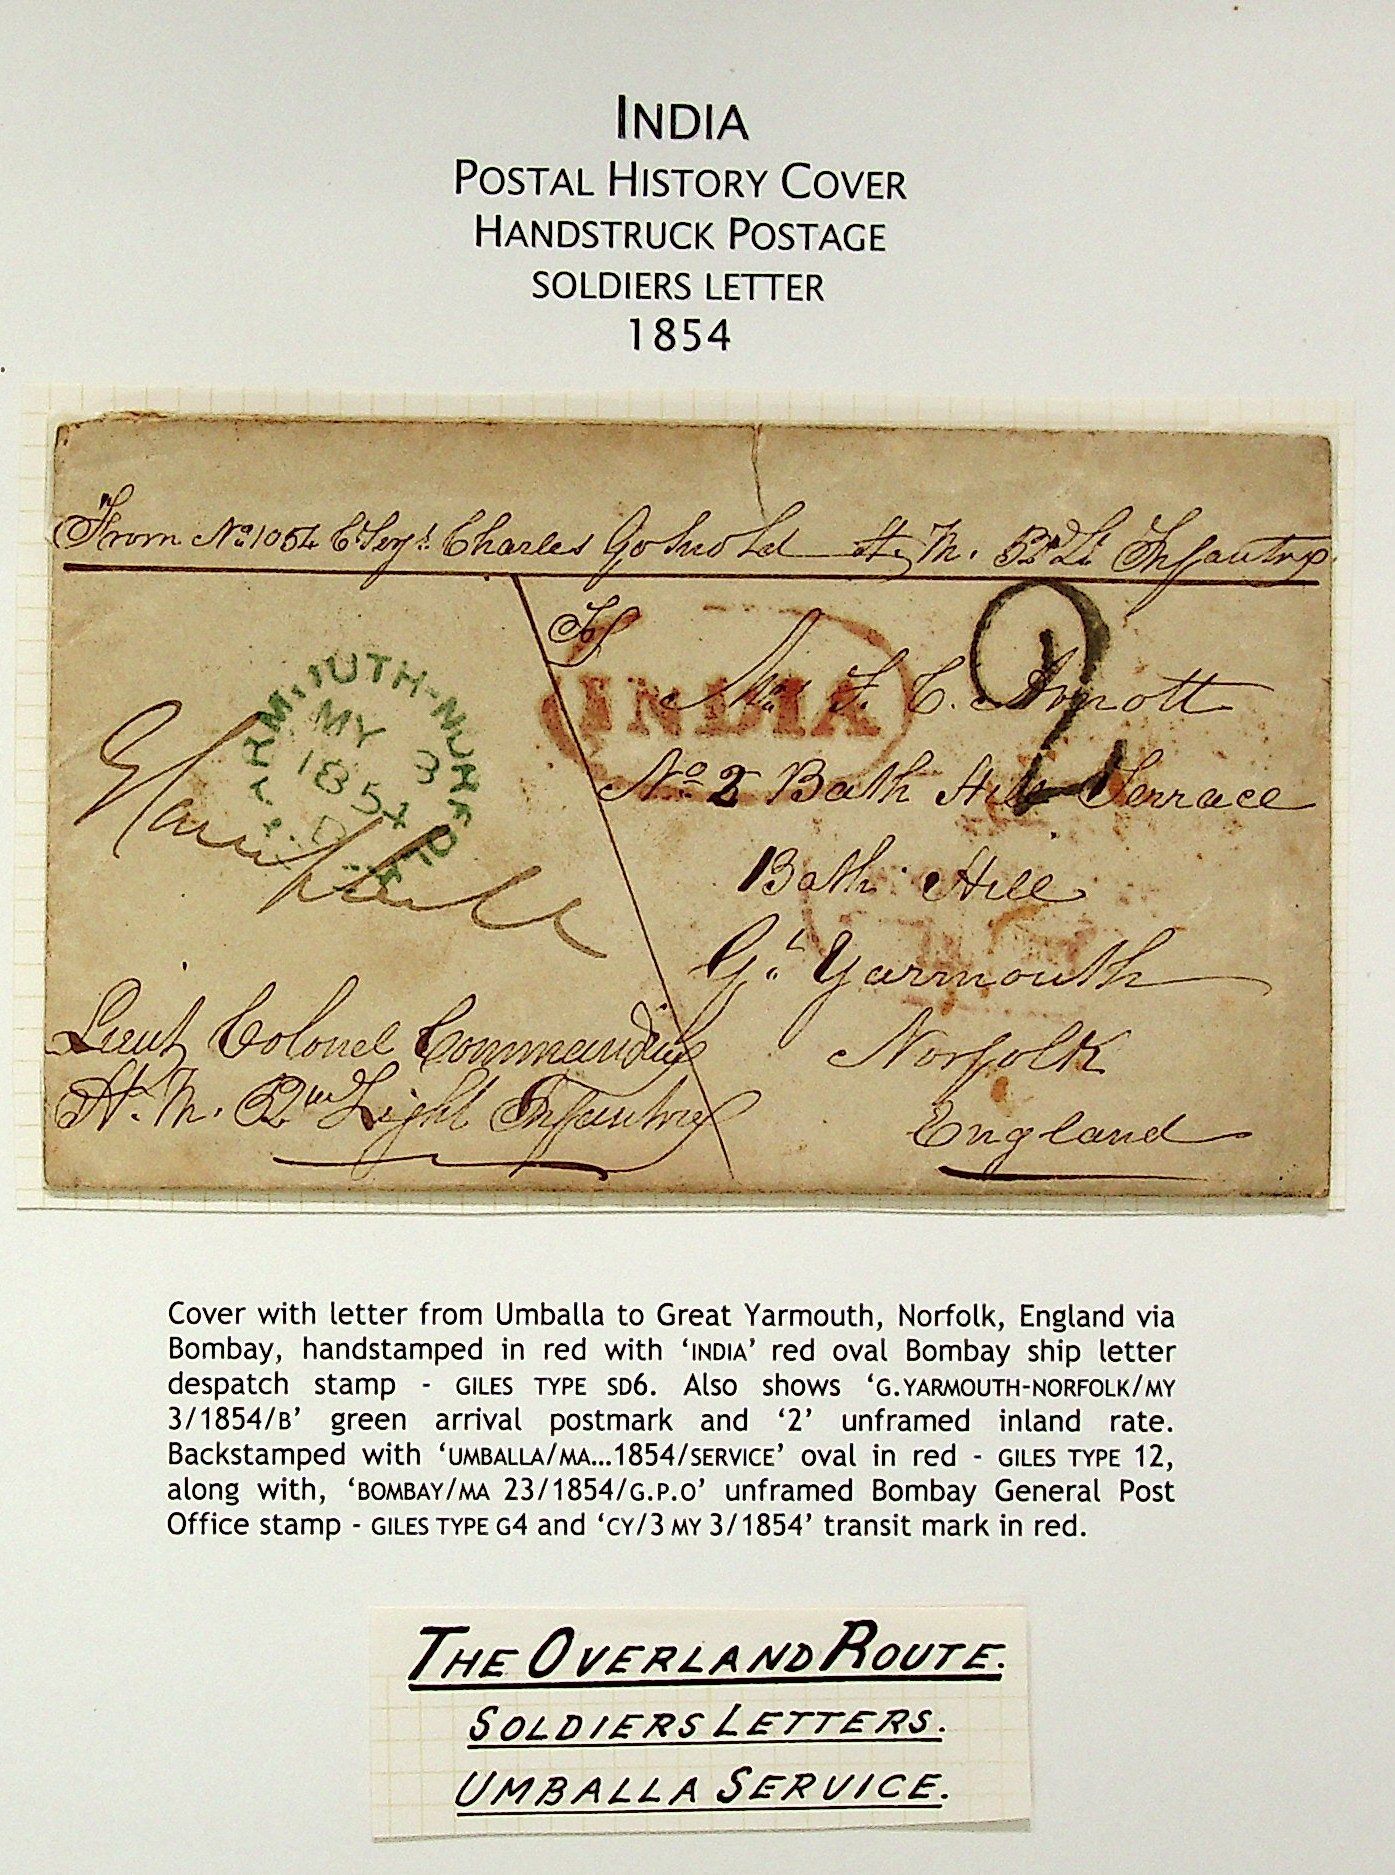 INDIA
POSTAL HISTORY COVER
HANDSTRUCK POSTAGE
SOLDIERS LETTER
1854
From No 1054 C. Serjt. Charles Gosnold H. M. 52d Lt. Infantry
To
INDIA
2
Mr. F. C. Arnott
No 2 Bath Hill Terrace
Bath Hill
Gt. Yarmouth
Norfolk
England
YARMOUTH-NORFOLK
MY 3
1854
Campbell
Lieut Colonel Commanding
H. M. 52nd Light Infantry
Cover with letter from Umballa to Great Yarmouth, Norfolk, England via
Bombay, handstamped in red with ‘INDIA’ red oval Bombay ship letter
despatch stamp - GILES TYPE SD6. Also shows ‘G.YARMOUTH-NORFOLK/MY
3/1854/B’ green arrival postmark and ‘2’ unframed inland rate.
Backstamped with ‘UMBALLA/MA...1854/SERVICE’ oval in red - GILES TYPE 12,
along with, ‘BOMBAY/MA 23/1854/G.P.O’ unframed Bombay General Post
Office stamp - GILES TYPE G4 and ‘CY/3 MY 3/1854’ transit mark in red.
THE OVERLAND ROUTE.
SOLDIERS LETTERS.
UMBALLA SERVICE.